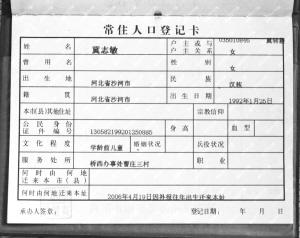 常住人口登记卡
姓名 冀志敏 户主或与户主关系 女
曾用名 性别 女
出生地 河北省沙河市 民族 汉族
籍贯 河北省沙河市 出生日期 1992年1月25日
本市(县)其他住址 宗教信仰
公民身份证件编号 130582199201350885 身高 血型
文化程度 学龄前儿童 婚姻状况 兵役状况
服务处所 桥西办事处曹庄三村 职业
何时由何地迁来本市(县)
何时由何地迁来本址 2006年4月19日因补报往年出生迁来本址
承办人签章: 登记日期: 年 月 日